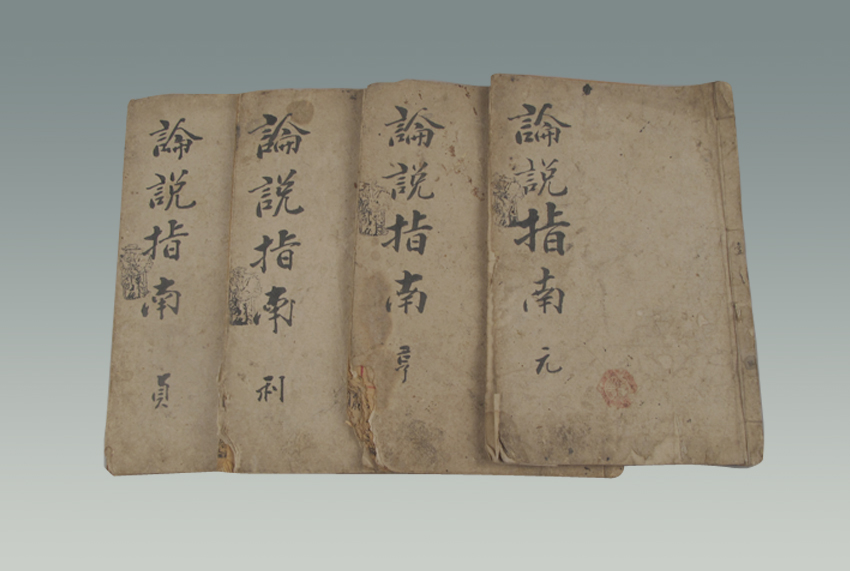 論説指南 元
論説指南 亨
論説指南 利
論説指南 貞